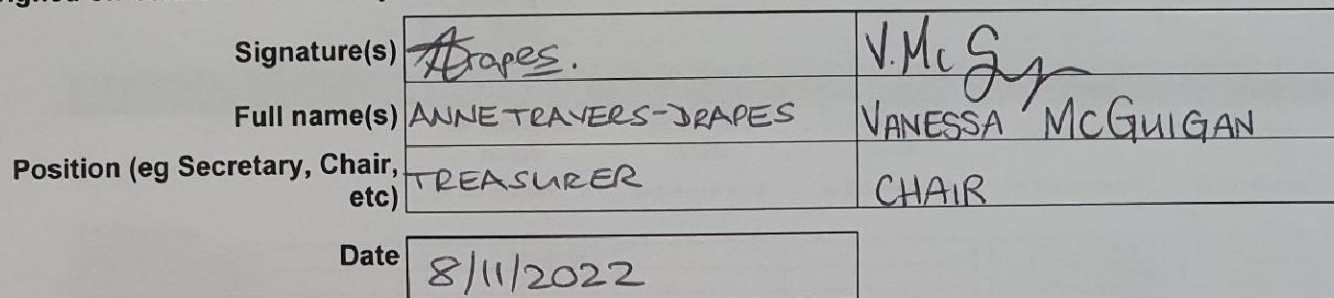 Signature(s) V. Mc
Full name(s) ANNE TRAVERS-DRAPES VANESSA MCGUIGAN
Position (eg Secretary, Chair,
etc) TREASURER CHAIR
Date 8/11/2022